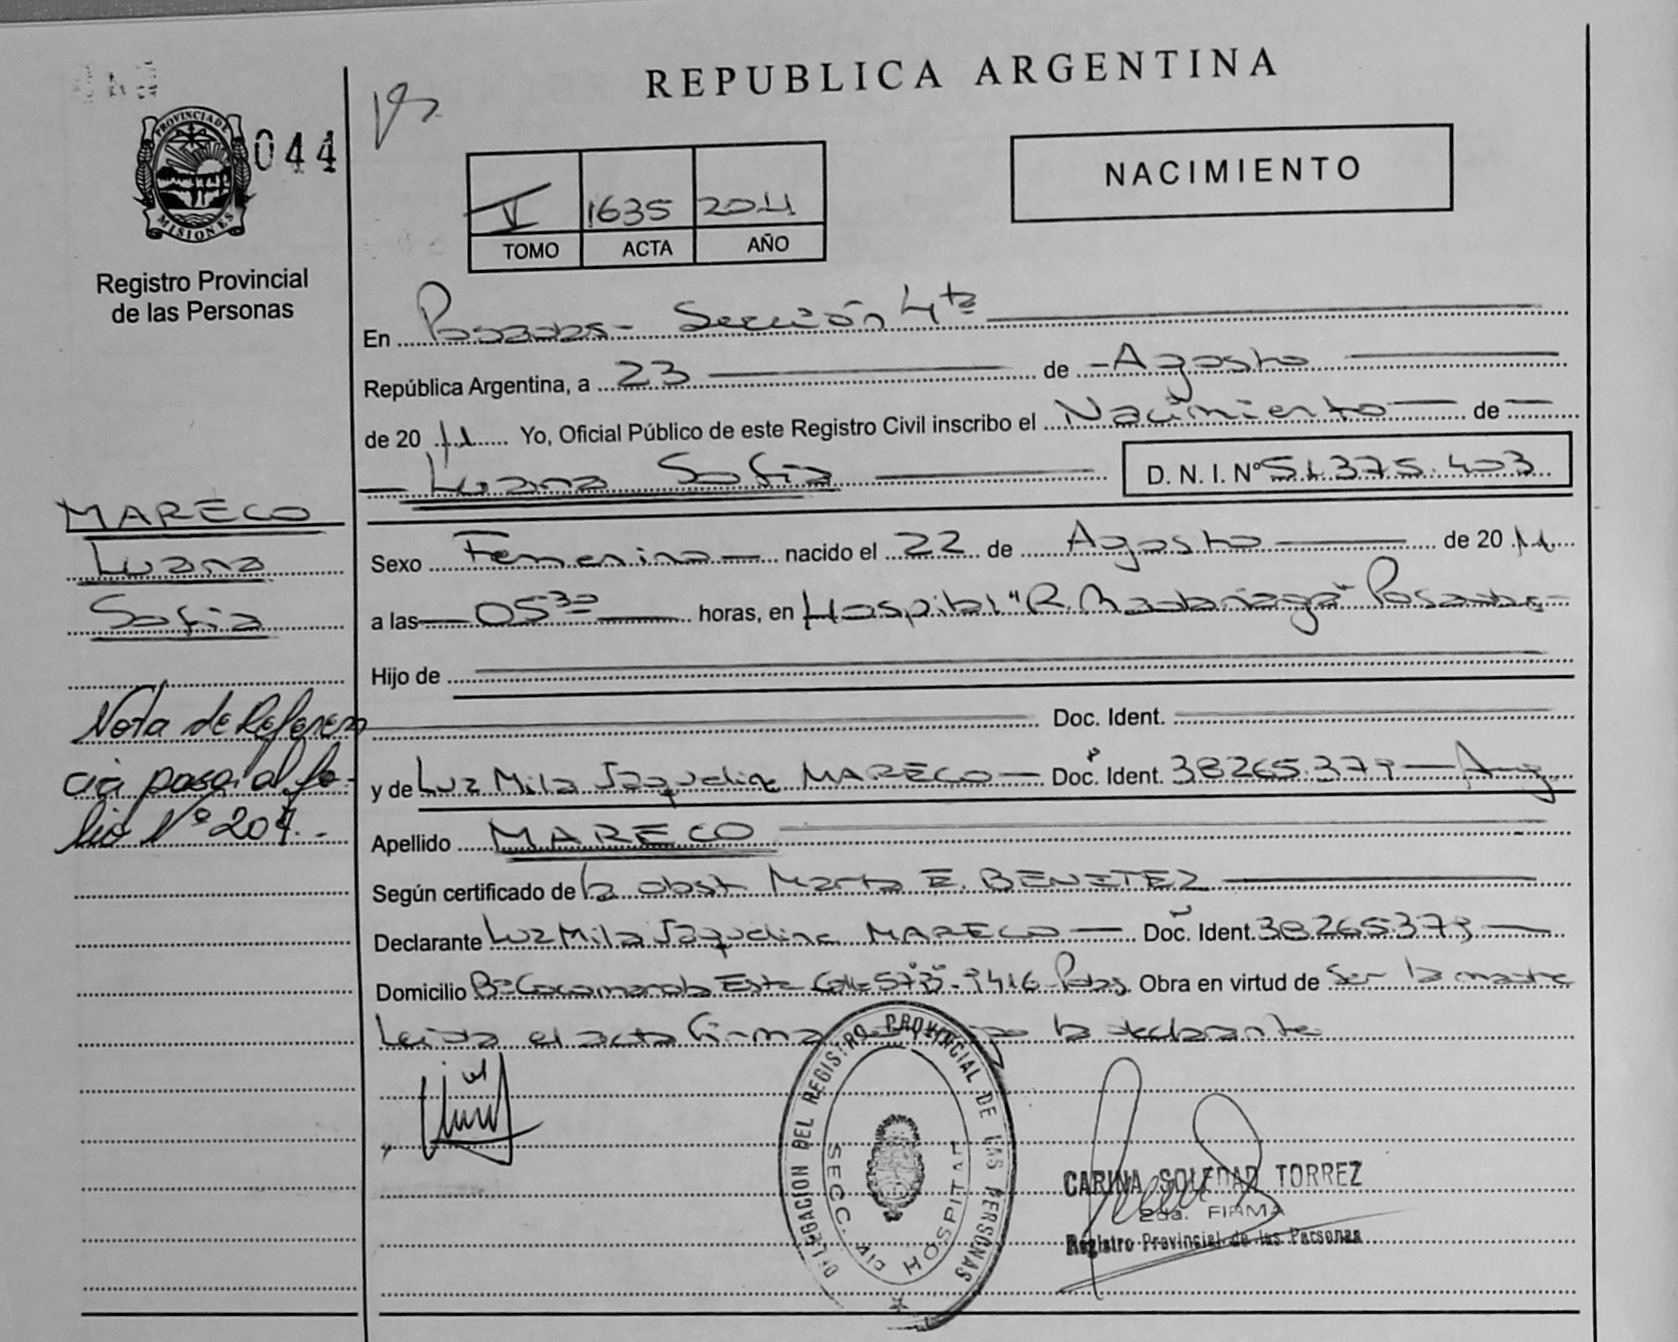 REPUBLICA ARGENTINA
PROVINCIA DE
MISIONES
044
Registro Provincial
de las Personas
NACIMIENTO
V 1635 2011
TOMO ACTA AÑO
En Posadas - Sección 4ta
República Argentina, a 23 de Agosto
de 20 11 Yo, Oficial Público de este Registro Civil inscribo el Nacimiento de
Luana Sofia D. N. I. Nº 51.375.403
MARECO
Luana
Sofia
Sexo Femenino nacido el 22 de Agosto de 20 11
a las 05 30 horas, en Hospital "R. Madariaga" Posadas -
Hijo de
Doc. Ident.
Nota de Referen
cia pasa al fo-
lio Nº 204.-
y de Luz Mila Jaqueline MARECO Doc. Ident. 38265.379 Arg
Apellido MARECO
Según certificado de la obst Marta E. BENITEZ
Declarante Luz Mila Jaqueline MARECO Doc. Ident. 38265379
Domicilio Bº Cocomarola Este Calle 9416 Pdas. Obra en virtud de Ser la madre
Leida el acta firma la declarante
DELEGACION DEL REGISTRO PROVINCIAL DE LAS PERSONAS
SECC. 4ta HOSPITAL
CARINA SOLEDAD TORREZ
2da. FIRMA
Registro Provincial de las Personas